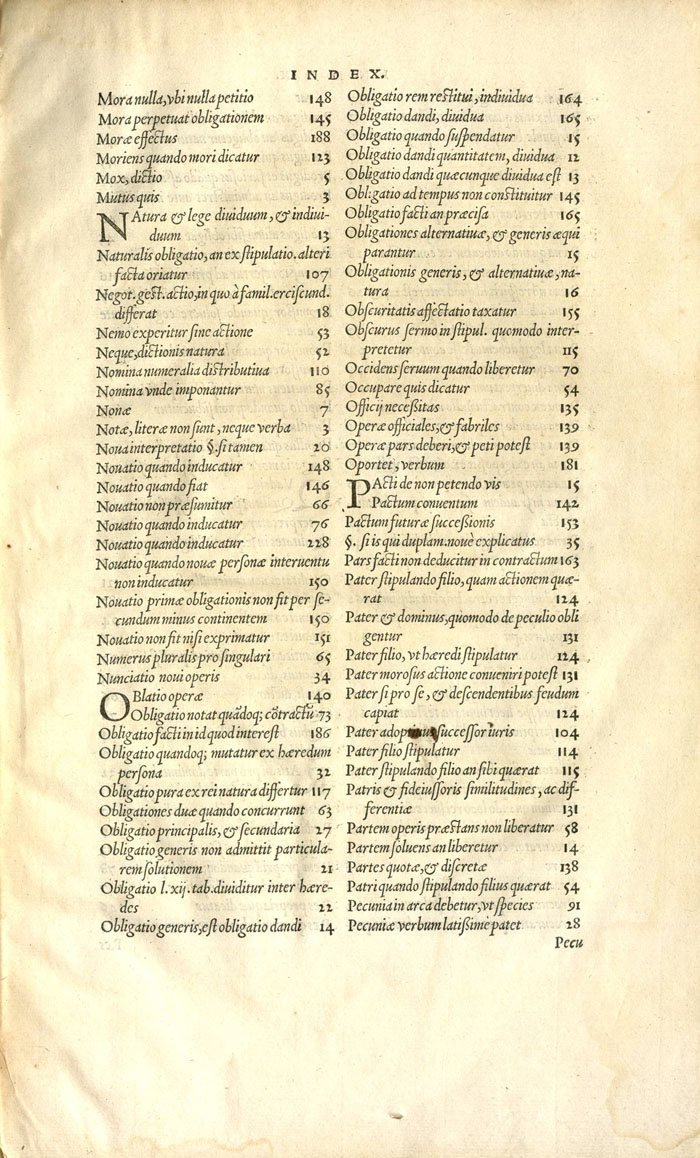 INDEX.
Mora nulla, vbi nulla petitio 148
Mora perpetuat obligationem 145
Moræ effectus 188
Moriens quando mori dicatur 123
Mox, dictio 5
Mutus quis 3
NAtura & lege diuiduum, & indiui-
duum 13
Naturalis obligatio, an ex stipulatio. alteri
facta oriatur 107
Negot. gest. actio, in quo à famil. erciscund.
differat 18
Nemo experitur sine actione 53
Neque, dictionis natura 52
Nomina numeralia distributiua 110
Nomina vnde imponantur 85
Nonæ 7
Notæ, literæ non sunt, neque verba 3
Noua interpretatio §. si tamen 20
Nouatio quando inducatur 148
Nouatio quando fiat 146
Nouatio non præsumitur 66
Nouatio quando inducatur 76
Nouatio quando inducatur 228
Nouatio quando nouæ personæ interuentu
non inducatur 150
Nouatio primæ obligationis non fit per se-
cundum minus continentem 150
Nouatio non fit nisi exprimatur 151
Numerus pluralis pro singulari 65
Nunciatio noui operis 34
OBlatio operæ 140
Obligatio notat quãdoq; cõtractũ 73
Obligatio facti in id quod interest 186
Obligatio quandoq; mutatur ex hæredum
persona 32
Obligatio pura ex rei natura differtur 117
Obligationes duæ quando concurrunt 63
Obligatio principalis, & secundaria 27
Obligatio generis non admittit particula-
rem solutionem 21
Obligatio l. xij. tab. diuiditur inter hære-
des 22
Obligatio generis, est obligatio dandi 14
Obligatio rem restitui, indiuidua 164
Obligatio dandi, diuidua 165
Obligatio quando suspendatur 15
Obligatio dandi quantitatem, diuidua 12
Obligatio dandi quæcunque diuidua est 13
Obligatio ad tempus non constituitur 145
Obligatio facti an præcisa 165
Obligationes alternatiuæ, & generis æqui
parantur 15
Obligationis generis, & alternatiuæ, na-
tura 16
Obscuritatis affectatio taxatur 155
Obscurus sermo in stipul. quomodo inter-
pretetur 115
Occidens seruum quando liberetur 70
Occupare quis dicatur 54
Officij necessitas 135
Operæ officiales, & fabriles 139
Operæ pars deberi, & peti potest 139
Oportet, verbum 181
PActi de non petendo vis 15
Pactum conuentum 142
Pactum futuræ successionis 153
§. si is qui duplam. nouè explicatus 35
Pars facti non deducitur in contractum 163
Pater stipulando filio, quam actionem quæ-
rat 124
Pater & dominus, quomodo de peculio obli
gentur 131
Pater filio, vt hæredi stipulatur 124
Pater morosus actione conueniri potest 131
Pater si pro se, & descendentibus feudum
capiat 124
Pater successor iuris 104
Pater filio stipulatur 114
Pater stipulando filio an sibi quærat 115
Patris & fideiussoris similitudines, ac dif-
ferentiæ 131
Partem operis præstans non liberatur 58
Partem soluens an liberetur 14
Partes quotæ, & discretæ 138
Patri quando stipulando filius quærat 54
Pecunia in arca debetur, vt species 91
Pecuniæ verbum latissimè patet 28
Pecu